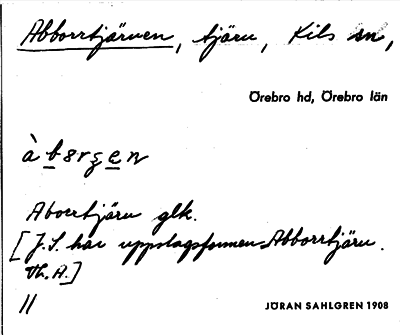 Abborrtjärnen, tjärn, Kils sn,
Örebro hd, Örebro län
Abbertjärn glk.
[J.S. har uppslagsformen Abborrtjärn.
Th. A.]
||
JÖRAN SAHLGREN 1908